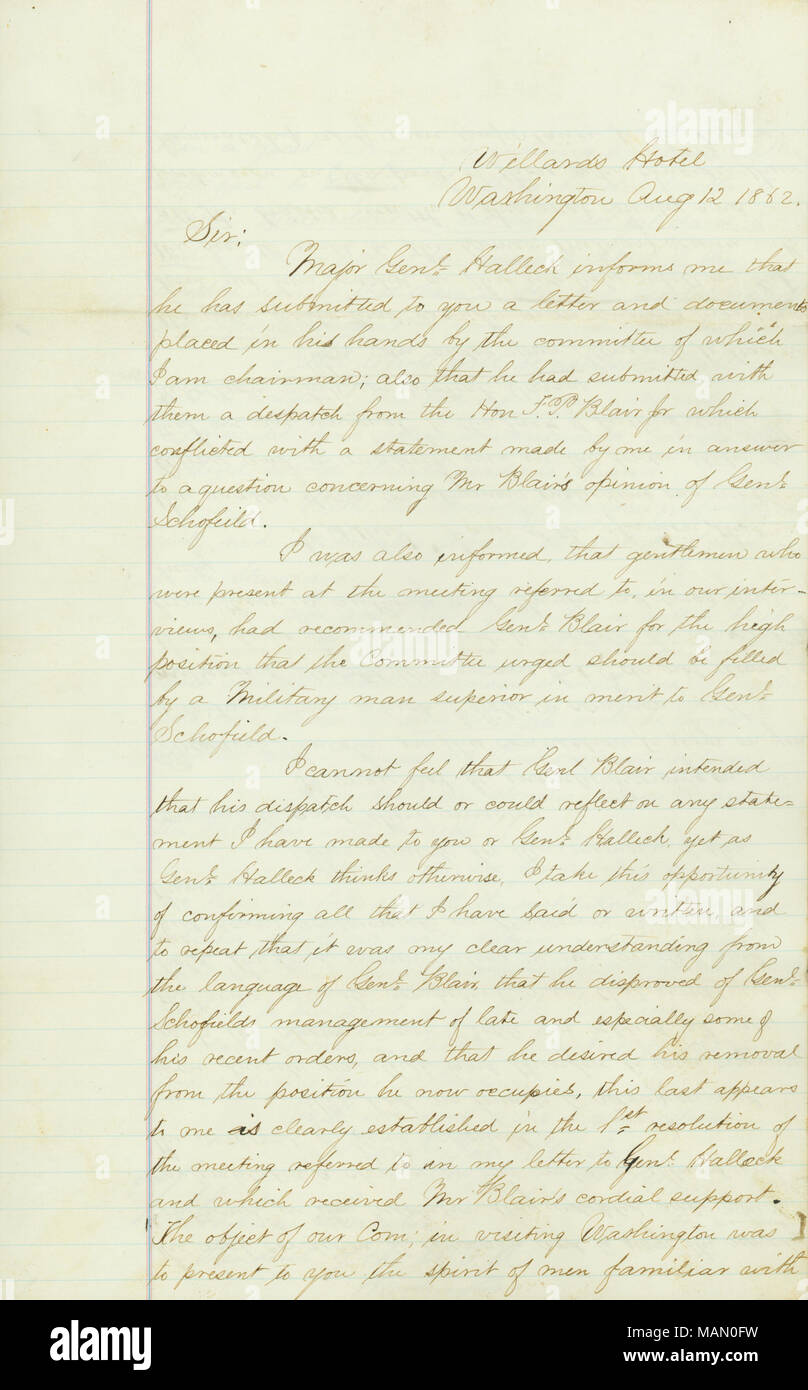 Willards Hotel
Washington Aug 12 1862.
Sir:
Major Genl. Halleck informs me that
he has submitted to you a letter and documents
placed in his hands by the committee of which
I am chairman; also that he had submitted with
them a despatch from the Hon F.P. Blair jr which
conflicted with a statement made by me in answer
to a question concerning Mr Blair's opinion of Genl.
Schofeild.
I was also informed, that gentlemen who
were present at the meeting referred to, in our inter-
views, had recommended Genl. Blair for the heigh
position that the Committee urged should be filled
by a Military man superior in merit to Genl.
Schofield.
I cannot feel that Genl Blair intended
that his dispatch should or could reflect on any state-
ment I have made to you or Genl. Halleck, yet as
Genl. Halleck thinks otherwise, I take this opportunity
of confirming all that I have said or written, and
to repeat that it was my clear understanding from
the language of Genl. Blair, that he disproved of Genl.
Schofields management of late and especially some of
his recent orders, and that he desired his removal
from the position he now occupies, this last appears
to me is clearly established in the 1st. resolution of
the meeting referred to in my letter to Genl. Halleck
and which received Mr Blair's cordial support.
The object of our Com; in visiting Washington was
to present to you the spirit of men familiar with
alamy
alamy
alamy
Image ID: MAN0FW
www.alamy.com